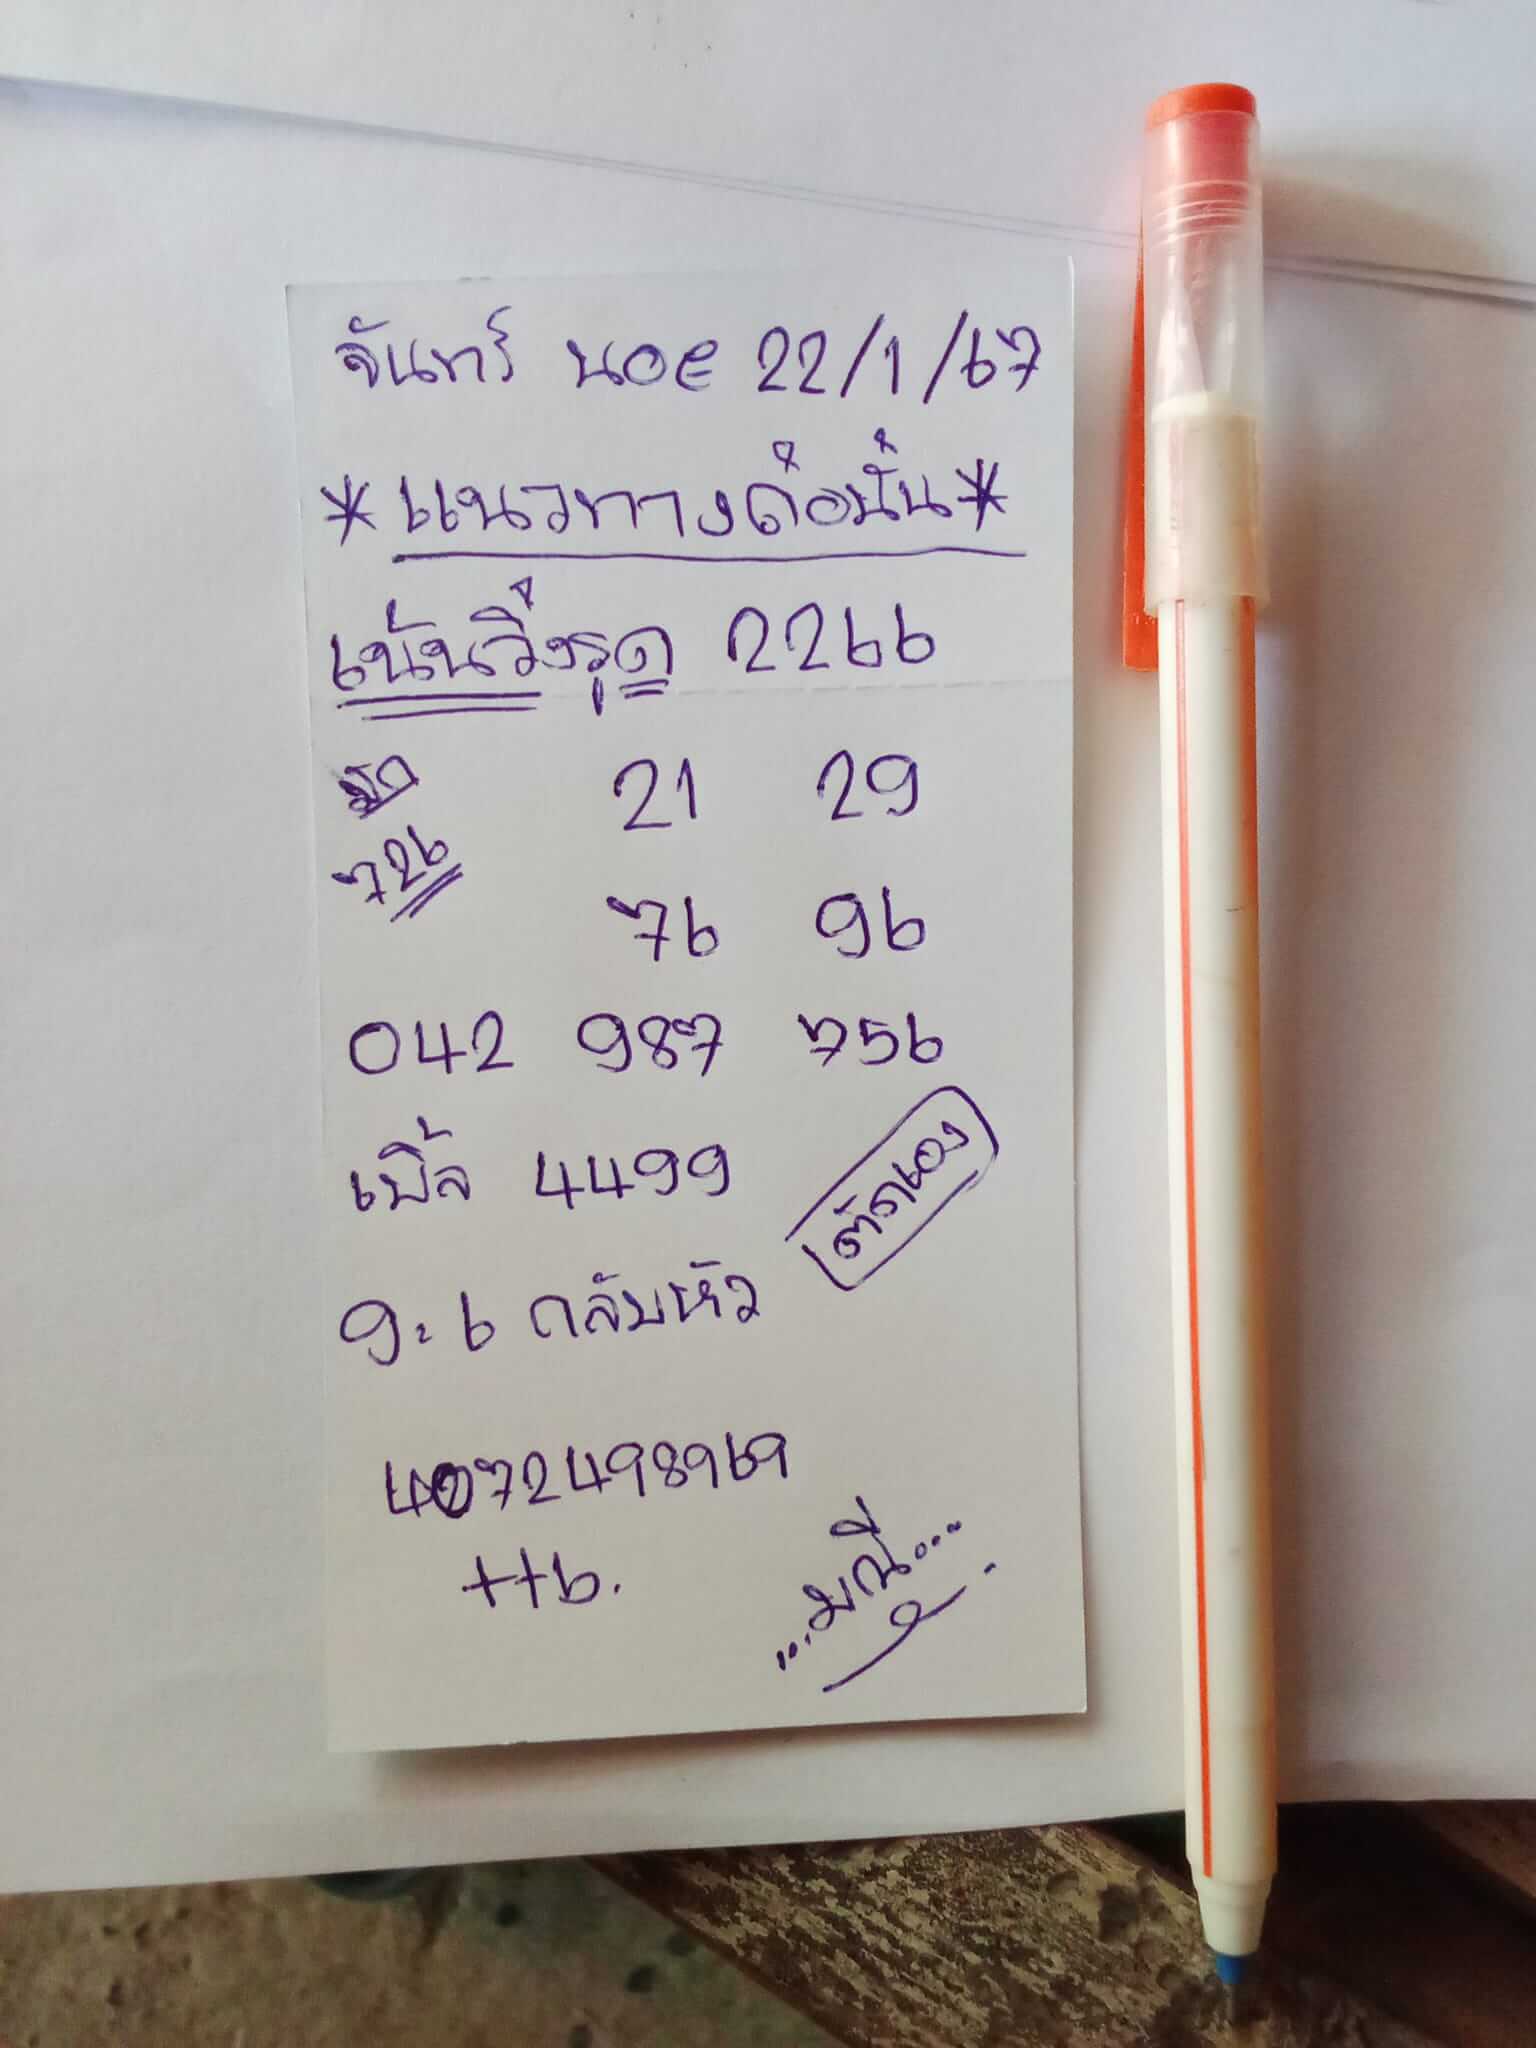 จันทร์ นอย 22/1/67
*แนวทางต่อนั่น*
เน้นวิ่งรูด 2266
21 29
726
76 96
042 987 756
เบิ้ล 4499
ตัดเอง
9:6 กลับหัว
4072498969
++6.
...มณี...